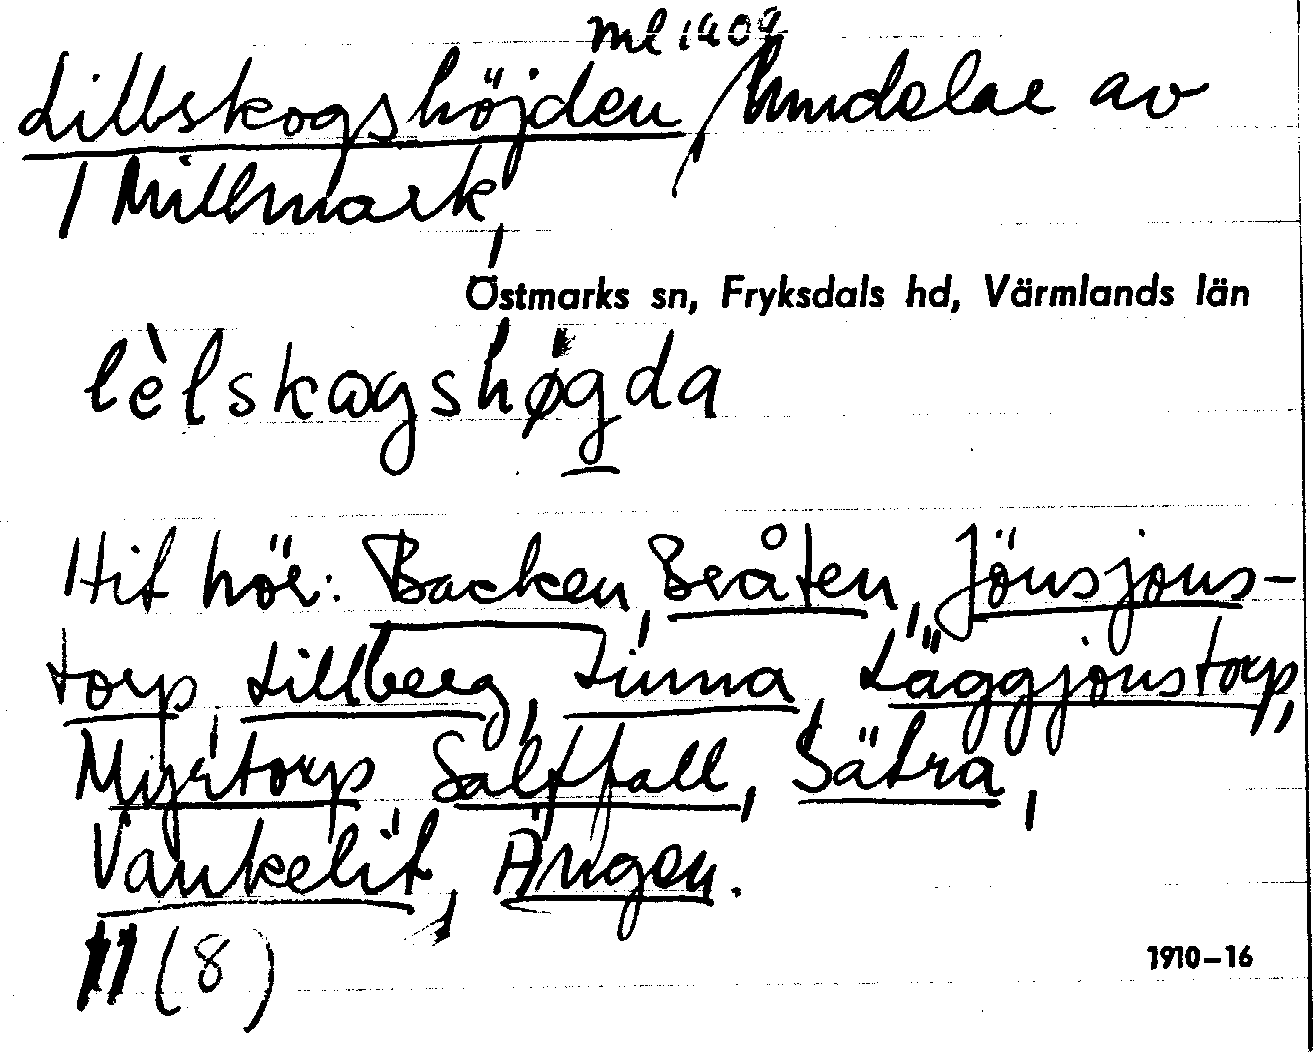 ml 1909
Lillskogshöjden, hmdelar av
1 Millmark,
Östmarks sn, Fryksdals hd, Värmlands län
lèlskogshøgda
Hit hör: Backen, Bråten, Jönsjons-
torp, Lillberg, Linna, Läggjonstorp,
Myrtorp Saltfall, Sätra,
Vankelit, Ängen.
11 (8)
1910–16